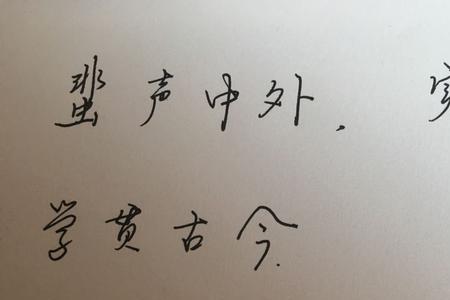 蜚声中外，
学贯古今.